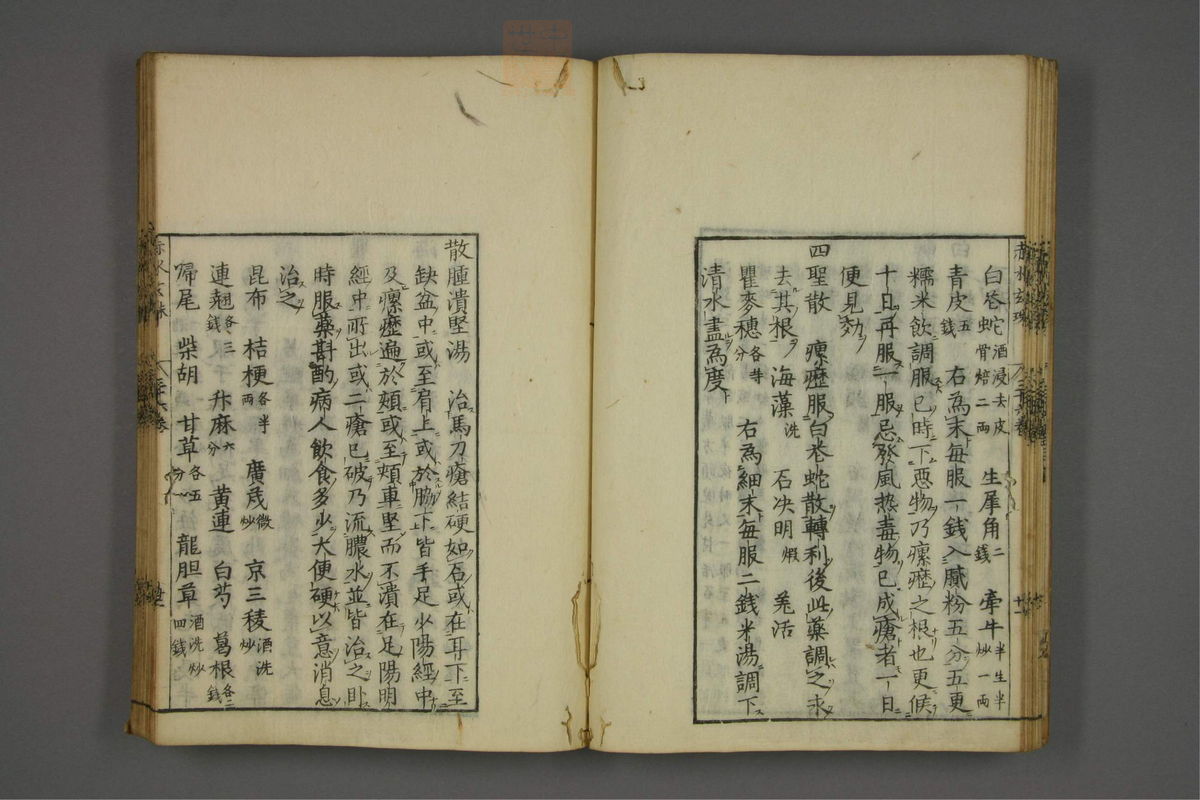 白花蛇酒浸去皮骨焙二両 生犀角二銭 牽牛半生半炒一両
青皮五銭 右為末毎服一銭入膩粉五分五更
糯米飲調服巳時下悪物乃瘰癧之根也更候
十日再服一服忌發風热毒物已成瘡者一日
便見効
四聖散 瘰癧服白花蛇散轉利後此藥調之永
去其根 海藻洗 石决明煅 羗活
瞿麥穗各等分 右為細末毎服二銭米湯調下
清水盡為度
散腫潰堅湯 治馬刀瘡結硬如石或在耳下至
缺盆中或至肩上或於脇下皆手足少陽經中
及瘰癧遍於頰或至頰車堅而不潰在足陽明
經中所出或二瘡已破乃流膿水並皆治之卧
時服藥斟酌病人飲食多少大便硬以意消息
治之
昆布 桔梗各半両 廣茂微炒 京三稜酒洗炒
連翹各三銭 升麻六分 黄連 白芍 葛根各二銭
帰尾 柴胡 甘草各五分 龍胆草酒洗炒四銭